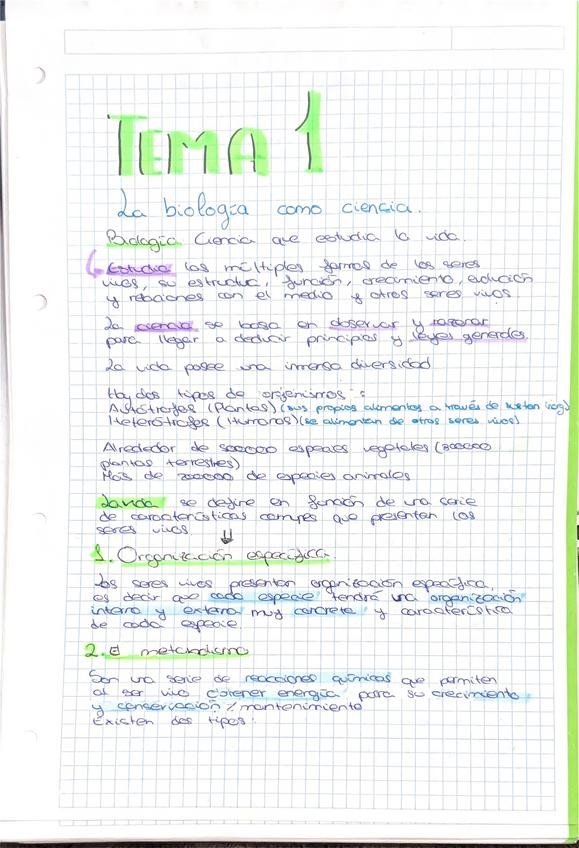 TEMA 1
La biología como ciencia.
Biología Ciencia que estudia la vida.
Estudia las múltiples formas de los seres
vivos, su estructura, función, crecimiento, evolución
y relaciones con el medio y otros seres vivos.
La ciencia se basa en observar y razonar
para llegar a deducir principios y leyes generales.
La vida posee una inmensa diversidad
Hay dos tipos de organismos:
Autótrofos (Plantas) (sus propios alimentos a través de sustan inorg)
Heterótrofos (Humanos) (se alimentan de otros seres vivos)
Alrededor de especies vegetales (300000
plantas terrestres)
Más de de especies animales
La vida se define en función de una serie
de características comunes que presentan los
seres vivos
1. Organización específica.
Los seres vivos presentan organización específica,
es decir que cada especie tendrá una organización
interna y externa muy concreta y característica
de cada especie.
2. El metabolismo
Son una serie de reacciones químicas que permiten
al ser vivo obtener energía para su crecimiento
y conservación / mantenimiento
Existen dos tipos: